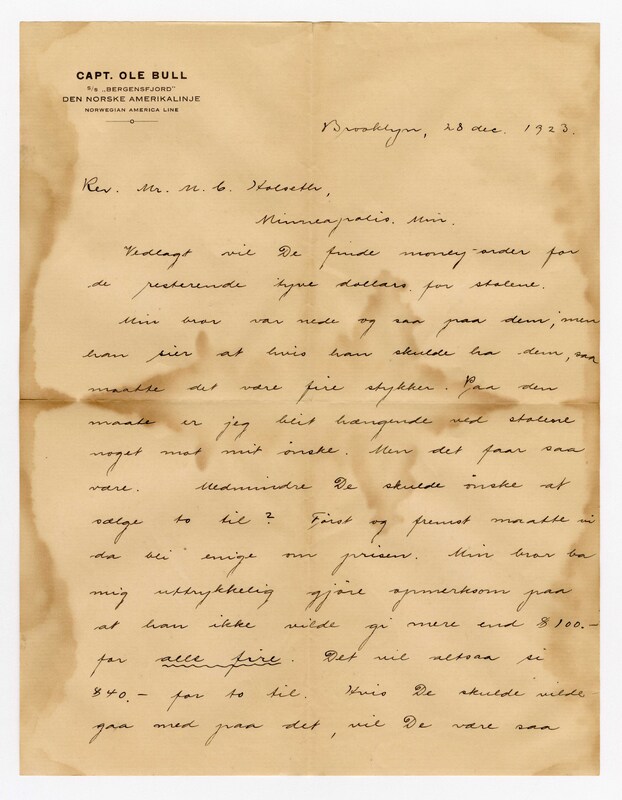 CAPT. OLE BULL
S/S „BERGENSFJORD"
DEN NORSKE AMERIKALINJE
NORWEGIAN AMERICA LINE
Brooklyn, 28 dec. 1923.
Rev. Mr. N. C. Holseth,
Minneapolis. Min.
Vedlagt vil De finde money-order for
de resterende tyve dollars for stolene.
Min bror var nede og saa paa dem, men
han sier at hvis han skulde ha dem, saa
maatte det være fire stykker. Paa den
maate er jeg blit hængende ved stolene
noget mot mit ønske. Men det faar saa
være. Medmindre De skulde ønske at
sælge to til? Først og fremst maatte vi
da bli enige om prisen. Min bror ba
mig uttrykkelig gjøre opmerksom paa
at han ikke vilde gi mere end $100.-
for alle fire. Det vil altsaa si
$40.- for to til. Hvis De skulde vilde
gaa med paa det, vil De være saa